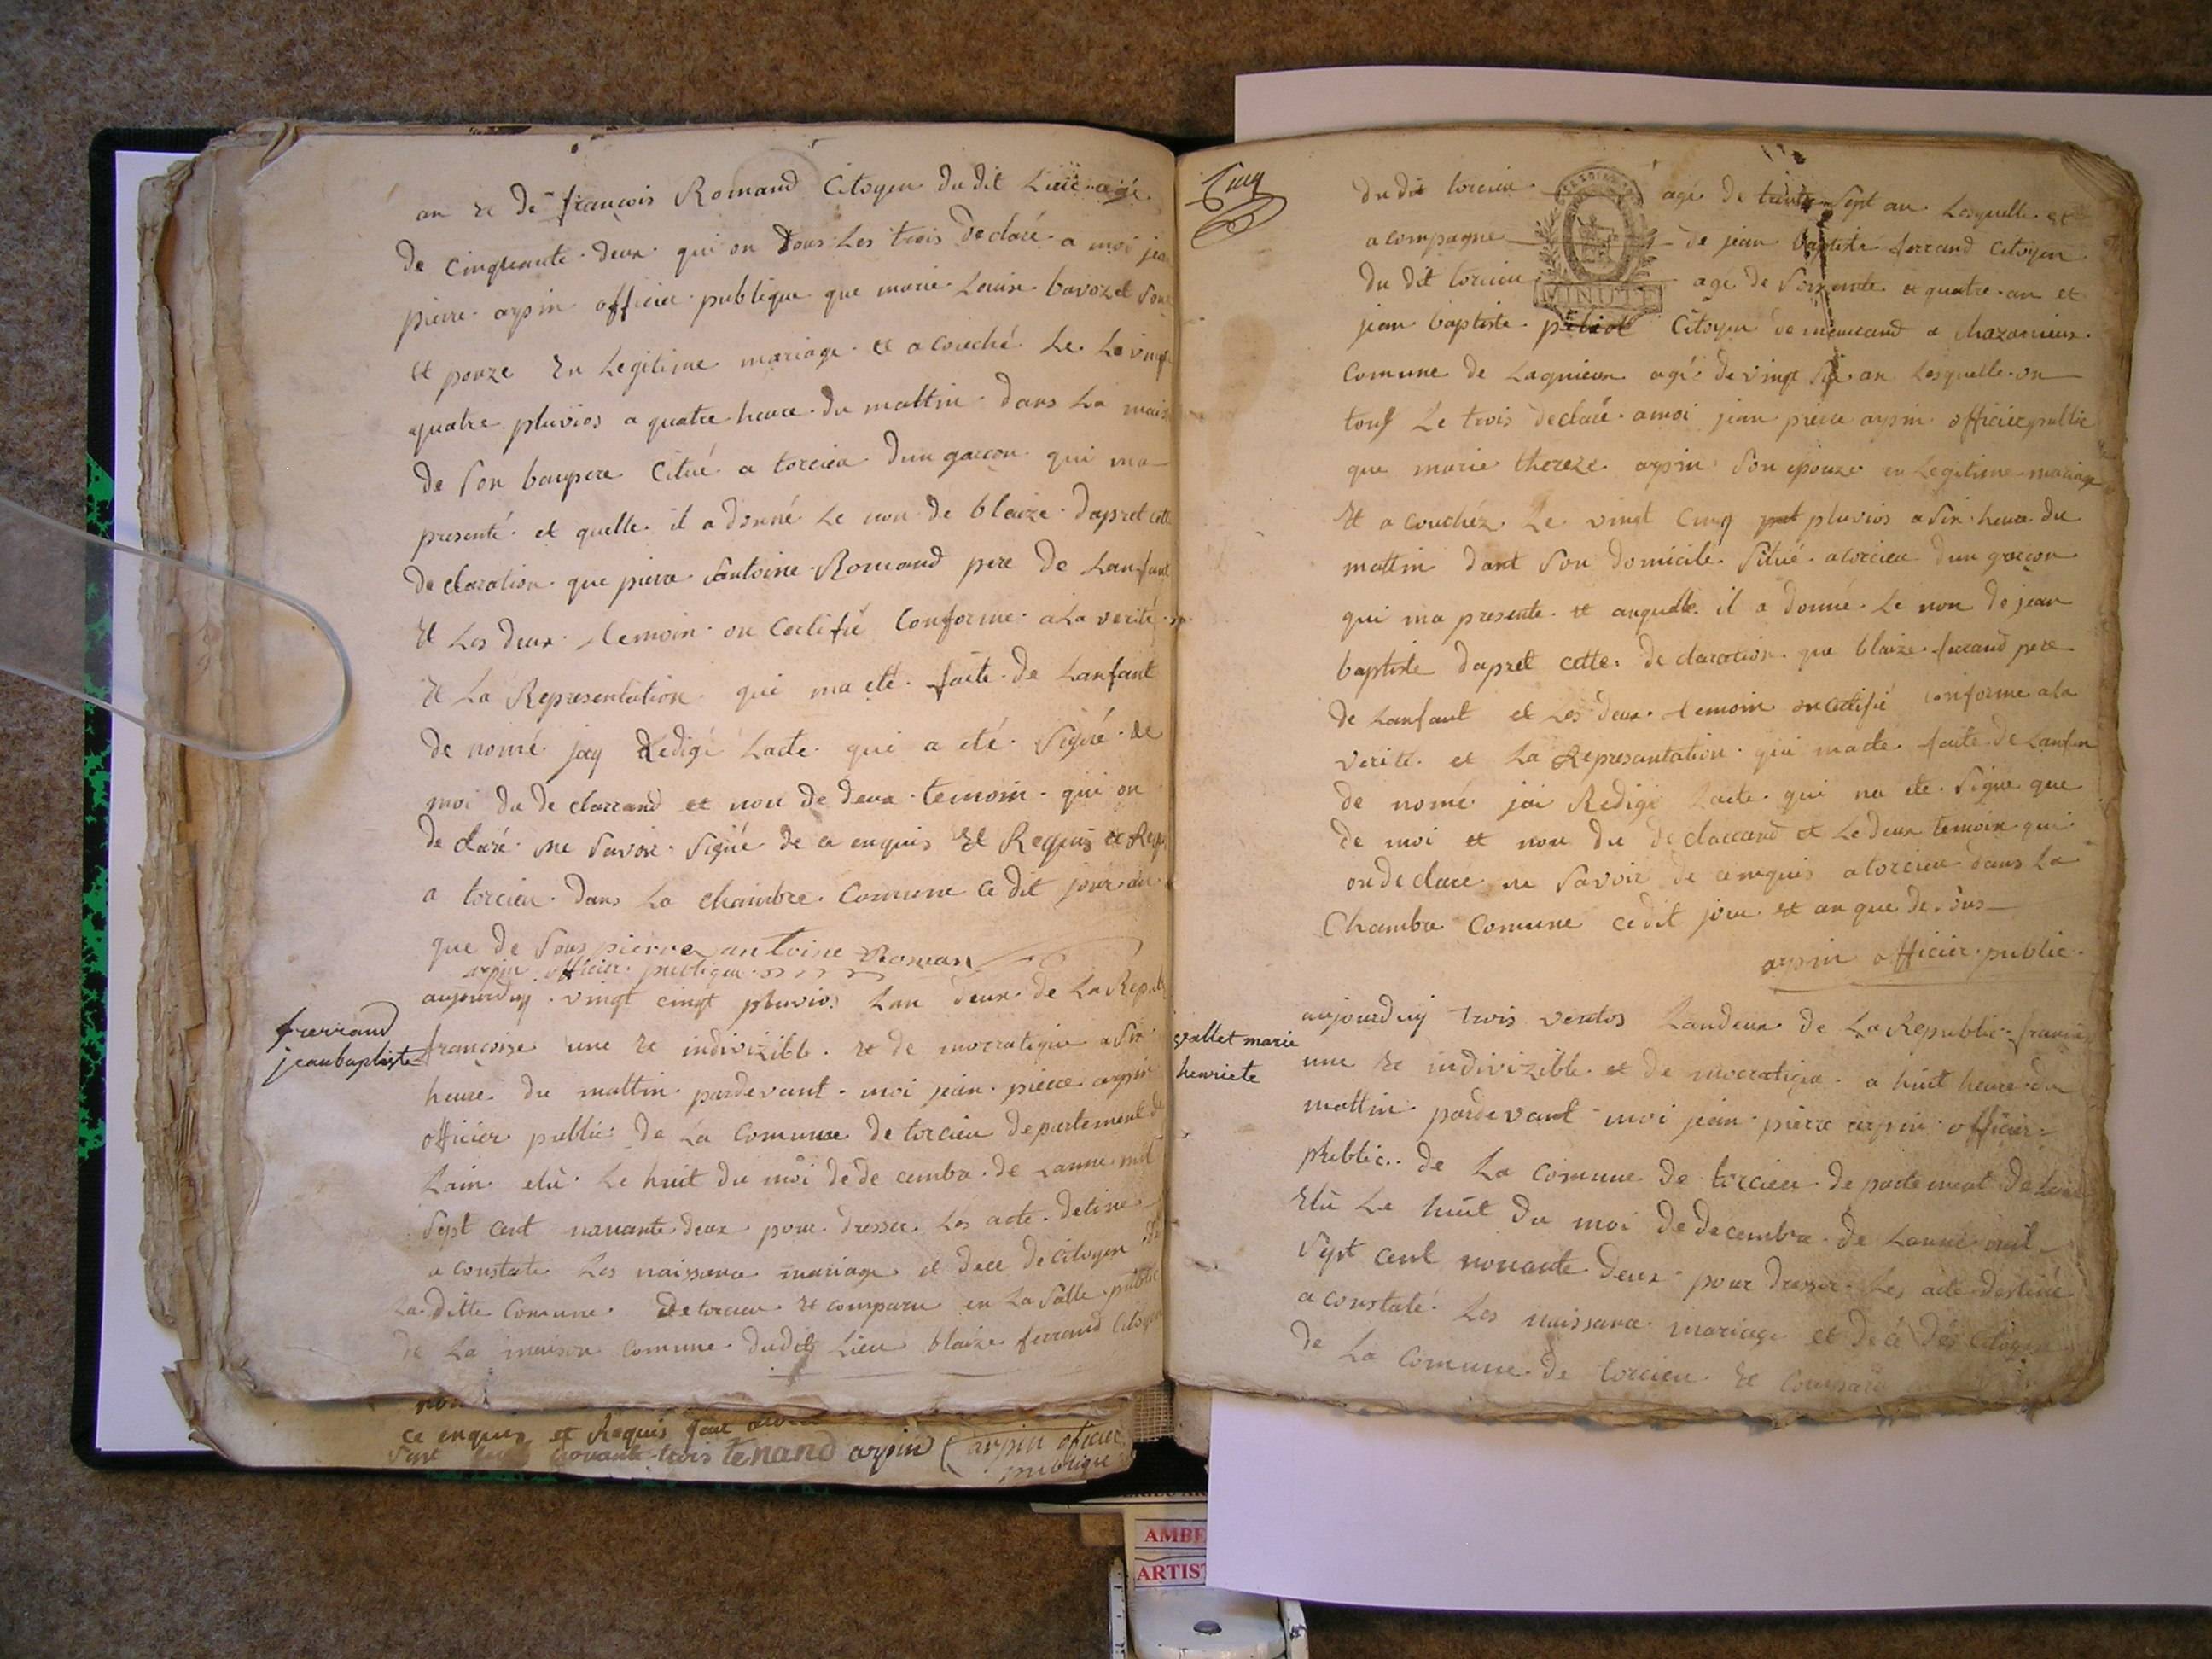 an et de françois Romand Citoyen du dit Lieu agé
de cinquante deux qui on tous Les trois declaré a moi jean
pierre arpin officier publique que marie Louise bavozet son
et pouze En Legitime mariage et a couché Le Le vingt
quatre pluvios a quatre heure du mattin dans La maison
de son baupere Citué a torcieu dun garcon qui ma
presenté et quelle il a donné Le non de blaize dapret cette
declaration que pierre antoine Romand pere de Lanfant
Et Les deux temoin on Certifié Conforme a La verité
Et La Representation qui ma eté faite de Lanfant
de nomé jay Redigé Lacte qui a eté Signé de
moi du declarrand et non de deux temoin qui on
declaré ne Savoir Signé de ce enquis Et Requis
a torcieu dans La chambre Comune Ce dit jour an
que de Sous pierre antoine Roman
arpin officier publique
aujourduy vingt cinqt pluvios Lan deux de La Republ
ferrand
jean baptiste
françoise une Et indivizible Et de mocratique a Six
heure du mattin pardevant moi jean pierre arpin
officier public de La Comune de torcieu departement de
Lain elu Le huit du moi de decembre de Lanne mil
Sept cent nonante deux pour dresser Les acte detiné
a constate Les naissance mariage et dece de Citoyen de
La ditte Comune de torcieu Et comparu en La Salle public
de La maison Comune dudit Lieu blaize ferrand Citoyen
ce enquis et Requis
nonante trois tenand arpin arpin officier
publique
AMBE
ARTIS
Cinq
du dit torcieu agé de trente Sept an Lesquelle et
acompagne de jean baptiste ferrand Citoyen
du dit torcieu agé de Soixente et quatre an et
MINUTE
jean baptiste Citoyen demeurand a Chazanieux
Comune de Lagnieux agé de vingt Six an Lesquelle on
tous Le trois declaré a moi jean pierre arpin officier public
que marie thereze arpin Son epouze en Legitime mariage
Et a couchéz Le vingt Cinq pluvios a Six heure du
mattin dant Son domicile Situé a torcieu dun garcon
qui ma presente et auquelle il a donné Le non de jean
baptiste dapret cette declaration que blaize ferrand pere
de Lanfant et Les deux temoin on certifié conforme a la
verité et La Representation qui ma ete faite de Lanfan
de nomé jai Redigé Lacte qui na ete Signe que
de moi et non du declarrand et Le deux temoin qui
on declare ne Savoir de ce enquis a torcieu dans La
Chambre Comune ce dit jour et an que de Sus
arpin officier public
aujourduy trois ventos Landeux de La Republic
vallet marie
henriete
une Et indivizible et de mocratique a huit heure du
mattin pardevant moi jean pierre arpin officier
public de La Comune de torcieu departement de Lain
Elu Le huit du moi de decembre de Lanné mil
Sept cent nonante deux pour dresser Les acte destiné
a constaté Les naissance mariage et décé des Citoyen
de La Comune de torcieu Et comparu